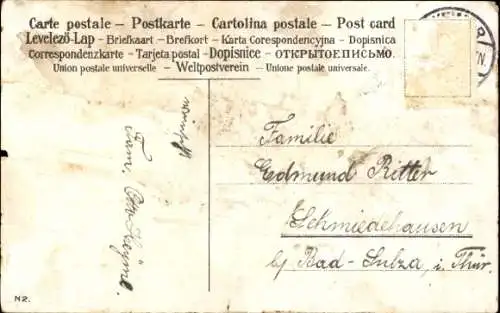 Carte postale – Postkarte – Cartolina postale – Post card
Levelező-Lap – Briefkaart – Brefkort – Karta Corespondencyjna – Dopisnica
Correspondenzkarte – Tarjeta postal – Dopisnice – ОТКРЫТОЕПИСЬМО.
Union postale universelle – Weltpostverein – Unione postale universale.
wünscht
Fam. Otto
Familie
Edmund Ritter
Schmiedehausen
b/ Bad-Sulza, i. Thür.
N2.